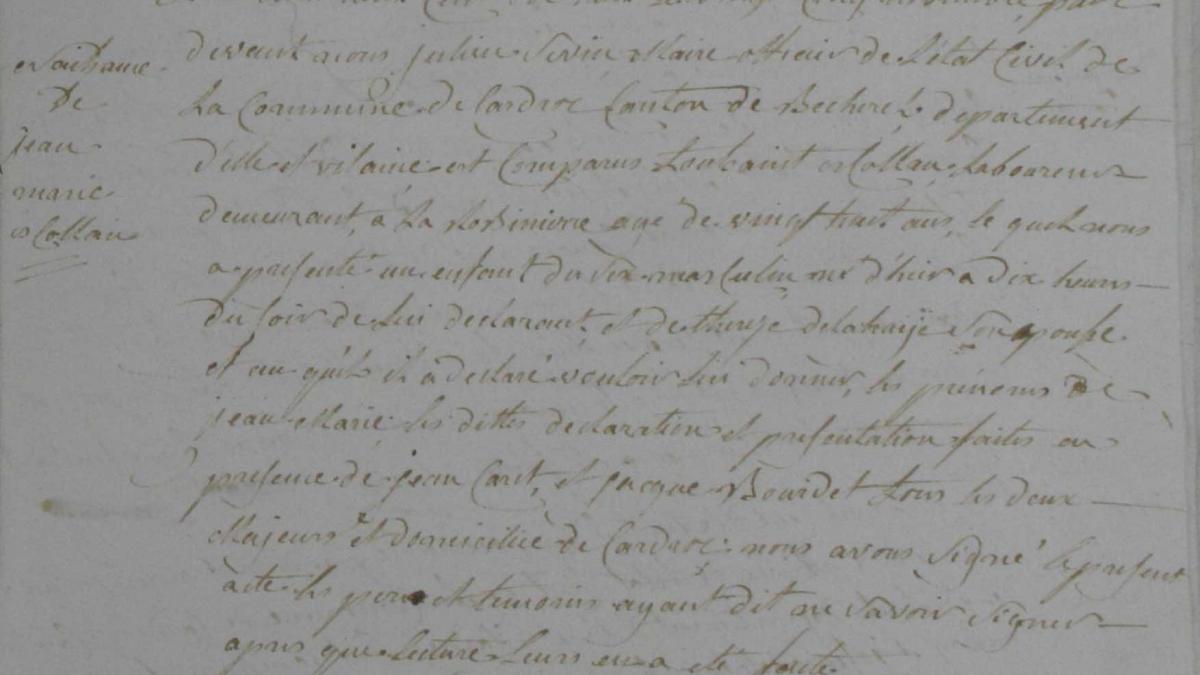 Naissance
De
jean
marie
Collau
devant nous julien Sevin Maire officier de L'état Civil de
La Commune de Cardroc Canton de Becherel departement
d'ille et vilaine est Comparus toussaint Collau Laboureur
demeurant, a La Robiniere age de vingt huit ans, le quel nous
a presenté un enfant du sex masculin né d'hier a dix heures
du soir de lui declarant, et de therese delahaÿe son epouse
et au quel il à declaré vouloir lui donner, les prenoms de
jean Marie les dittes declaration et presentation faites en
presence de jean Caret, et jacque Bourdet tous les deux
Majeurs et domicilié de Cardroc nous avons signé le present
acte les pere et temoins ayant dit ne savoir signer
apres que lecture leurs en a eté faite